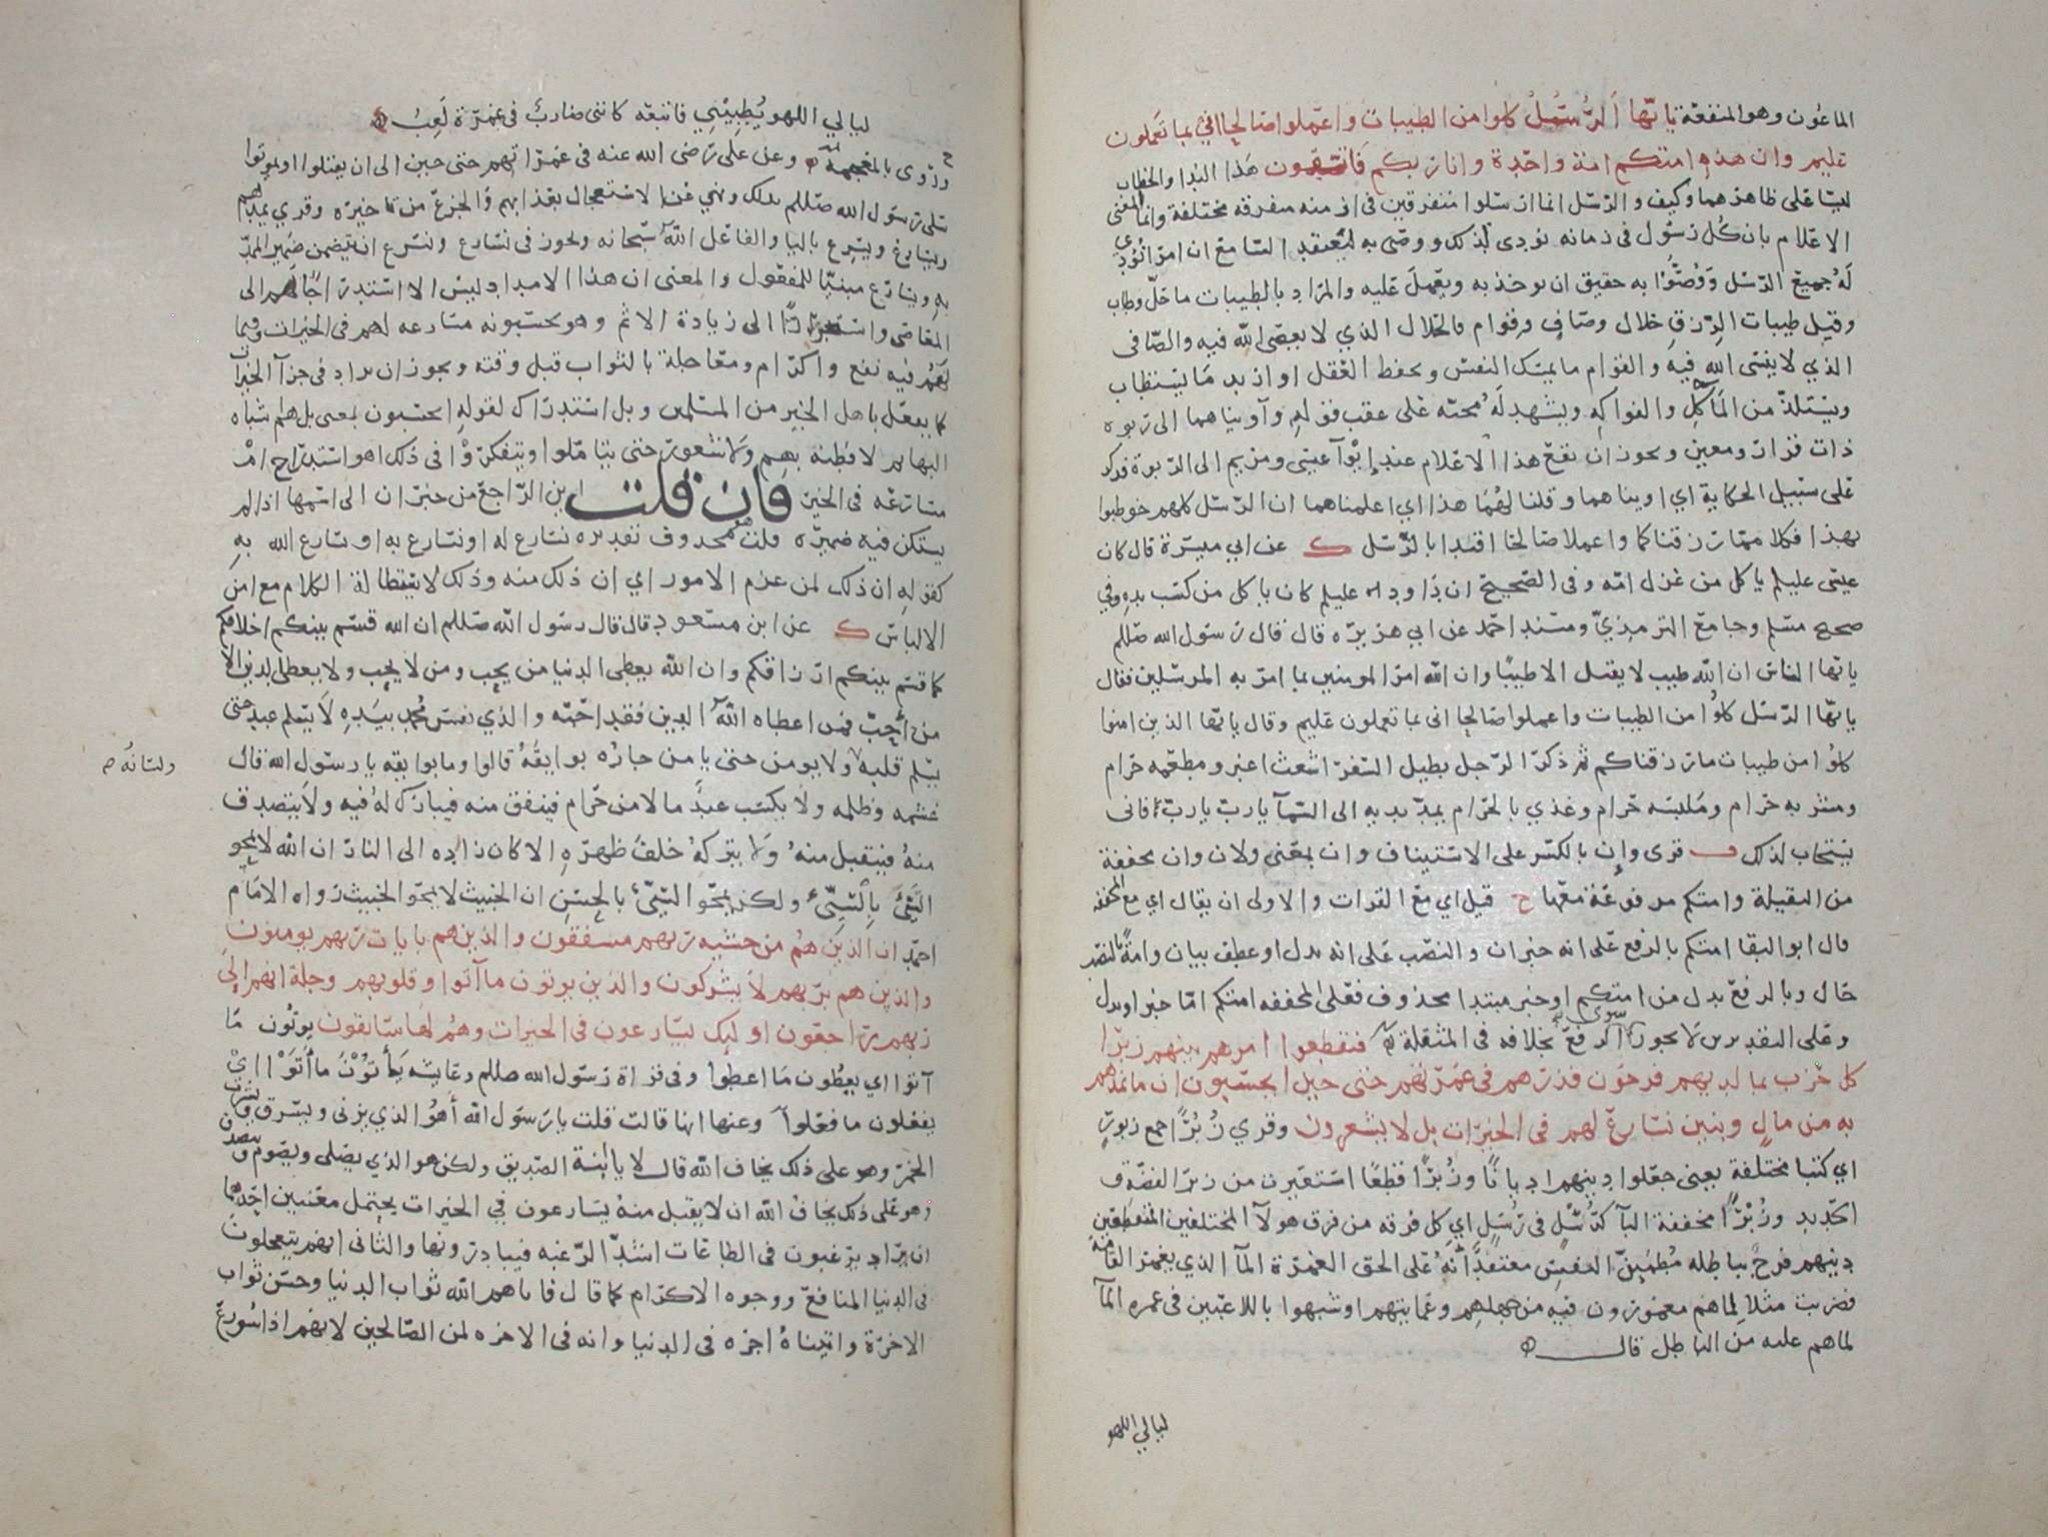 الماعون وهو المنفعة يا أيها الرسل كلوا من الطيبات واعملوا صالحا اني بما تعملون
عليم وان هذه امتكم امة واحدة وانا ربكم فاتقون هذا النداء والخطاب
ليسا على ظاهرهما وكيف والرسل انما ارسلوا متفرقين في ازمنه متفرقه مختلفة وانما المعنى
الاعلام بان كل رسول في زمانه نودي لذلك ووصى به ليعتقد السامع ان امرا نودي
له جميع الرسل ووصوا به حقيق ان يوخذ به ويعمل عليه والمراد بالطيبات ما حل وطاب
وقيل طيبات الرزق حلال وصاف وقوام فالحلال الذي لا يعصى الله فيه والصافى
الذي لا ينسى الله فيه والقوام ما يمسك النفس ويحفظ العقل او اريد ما يستطاب
ويستلذ من المآكل والفواكه ويشهد له مجئه على عقب قوله وآويناهما الى ربوه
ذات قرار ومعين ويجوز ان يقع هذا الاعلام عند إيوآ عيسى ومريم الى الربوة فذكر
على سبيل الحكاية اي اويناهما وقلنا لهما هذا اي اعلمناهما ان الرسل كلهم خوطبوا
بهذا فكلا مما رزقناكما واعملا صالحا اقتدا بالرسل ك عن ابي ميسرة قال كان
عيسى عليلم ياكل من غزل امه وفى الصحيح ان داود عليلم كان ياكل من كسب يده وفي
صحيح مسلم وجامع الترمذي ومسند احمد عن ابي هريره قال قال رسول الله صللم
يا ايها الناس ان الله طيب لا يقبل الا طيبا وان الله امر المومنين بما امر به المرسلين فقال
يا ايها الرسل كلوا من الطيبات واعملوا صالحا انى بما تعملون عليم وقال يا ايها الذين امنوا
كلوا من طيبات ما رزقناكم ثم ذكر الرجل يطيل السفر اشعث اغبر ومطعمه حرام
ومشربه حرام وملبسه حرام وغذي بالحرام يمد يديه الى السمآ يارب يارب فانى
يستجاب لذلك ف قرى وإن بالكسر على الاستيناف وان بمعنى ولان وان مخففة
من الثقيلة وامتكم مرفوعة معها ح قيل اي مع القرات والاولى ان يقال اي مع المخففه
قال ابو البقا امتكم بالرفع على انه خبر ان والنصب على انه بدل او عطف بيان وامة بالنصب
حال وبالرفع بدل من امتكم او خبر مبتدا محذوف فعلى المخففه امتكم اما خبر او بدل
وعلى التقديرين لا يجوز سوى الرفع بخلافه في المثقلة فتقطعوا امرهم بينهم زبرا
كل حزب بما لديهم فرحون فذرهم في غمرتهم حتى حين ايحسبون ان ما نمدهم
به من مال وبنين نسارع لهم في الخيرات بل لا يشعرون وقرى زبرا جمع زبور
اي كتبا مختلفة يعنى جعلوا دينهم اديانا وزبرا قطعا استعيرت من زبر الفضة و
الحديد وزبرا مخففة البآ كرسل في رسل اي كل فرقه من فرق هولآ المختلفين المتقطعين
دينهم فرح بباطله مطمئن النفس معتقد أنه على الحق الغمرة المآ الذي يغمر القامة
فضربت مثلا لما هم مغمورون فيه من جهلهم وعمايتهم او شبهوا باللاعبين في غمره المآ
لما هم عليه من الباطل قال
ليالي اللهو
ليالي اللهو يطبيني فاتبعه كاننى ضارب في غمرة لعب
وروى بالمعجمة وعن على رضى الله عنه في غمراتهم حتى حين الى ان يقتلوا او يموتوا
سلى رسول الله صللم بذلك ونهي عن الاستعجال بعذابهم والجزع من تاخيره وقرى يمدهم
ويسارع ويسرع باليا والفاعل الله سبحانه ويجوز في نسارع ونسرع ان يتضمن ضمير الممد
به ويسارع مبنيا للمفعول والمعنى ان هذا الامداد ليس الا استدراجا لهم الى
المعاصى واستجرارا الى زيادة الاثم وهو يحسبونه مسارعه لهم في الخيرات وفيما
لهم فيه نفع واكرام ومعاجلة بالثواب قبل وقته ويجوز ان يراد في جزآ الخيرات
كما يفعل باهل الخير من المسلمين وبل استدراك لقوله ايحسبون يعنى بل هم اشباه
البهايم لا فطنه بهم ولا شعور حتى يتاملوا ويتفكروا في ذلك اهو استدراج ام
مسارعه في الخير فان قلت اين الراجع من خبر ان الى اسمها اذا لم
يستكن فيه ضميره قلت هو محذوف تقديره نسارع له او نسارع به او سارع الله به
كقوله ان ذلك لمن عزم الامور اي ان ذلك منه وذلك لاستطالة الكلام مع امن
الالباس ك عن ابن مسعود قال قال رسول الله صللم ان الله قسم بينكم اخلاقكم
كما قسم بينكم ارزاقكم وان الله يعطي الدنيا من يحب ومن لا يحب ولا يعطى الدين الا
من أحب فمن اعطاه الله الدين فقد احبه والذي نفس محمد بيده لا يسلم عبد حتى
يسلم قلبه ولا يومن حتى يامن جاره بوايقه قالوا وما بوايقه يا رسول الله قال
ولسانه ص
غشمه وظلمه ولا يكسب عبد مالا من حرام فينفق منه فيبارك له فيه ولا يتصدق
منه فيتقبل منه ولا يتركه خلف ظهره الا كان زاده الى النار ان الله لا يمحو
السيئ بالسيئ ولكن يمحو السيئ بالحسن ان الخبيث لا يمحو الخبيث رواه الامام
احمد ان الذين هم من خشيه ربهم مشفقون والذين هم بايات ربهم يومنون
والذين هم بربهم لا يشركون والذين يوتون ما آتوا وقلوبهم وجلة انهم الى
ربهم راجعون اوليك يسارعون في الخيرات وهم لها سابقون يوتون ما
آتوا اي يعطون ما اعطوا وفى قراة رسول الله صللم وعايشه يأتون ما أتوا اي
يفعلون ما فعلوا وعنها انها قالت قلت يا رسول الله أهو الذي يزنى ويسرق ويشرب
الخمر وهو على ذلك يخاف الله قال لا يا ابنة الصديق ولكن هو الذي يصلى ويصوم ويتصدق
وهو على ذلك يخاف الله ان لا يقبل منه يسارعون في الخيرات يحتمل معنيين احدهما
ان يراد يرغبون في الطاعات اشد الرغبه فيبادرونها والثانى انهم يتعجلون
في الدنيا المنافع ووجوه الاكرام كما قال فآتاهم الله ثواب الدنيا وحسن ثواب
الاخرة واتيناه اجره في الدنيا وانه في الاخره لمن الصالحين لانهم اذا سورع